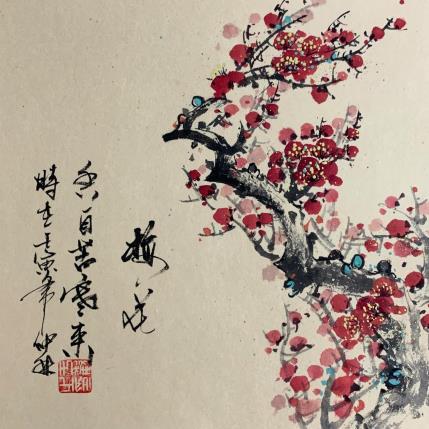 梅花
香自苦寒来
時在壬寅年